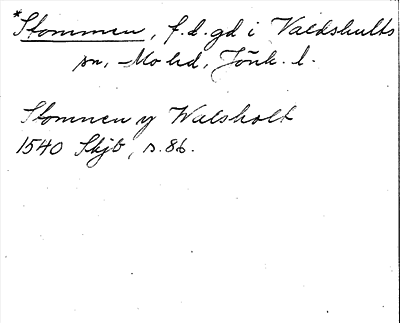 *Stommen, f.d. gd i Valdshults
sn, Mo hd, Jönk. l.
Stomnen y Walsholt
1540 Skjb, s. 86.